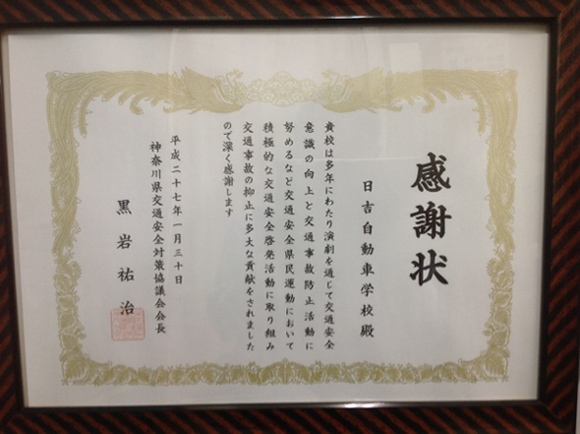 感謝状
日吉自動車学校殿
貴校は多年にわたり演劇を通じて交通安全
意識の向上と交通事故防止活動に
努めるなど交通安全県民運動において
積極的な交通安全啓発活動に取り組み
交通事故の抑止に多大な貢献をされました
ので深く感謝します
平成二十七年一月三十日
神奈川県交通安全対策協議会会長
黒岩祐治